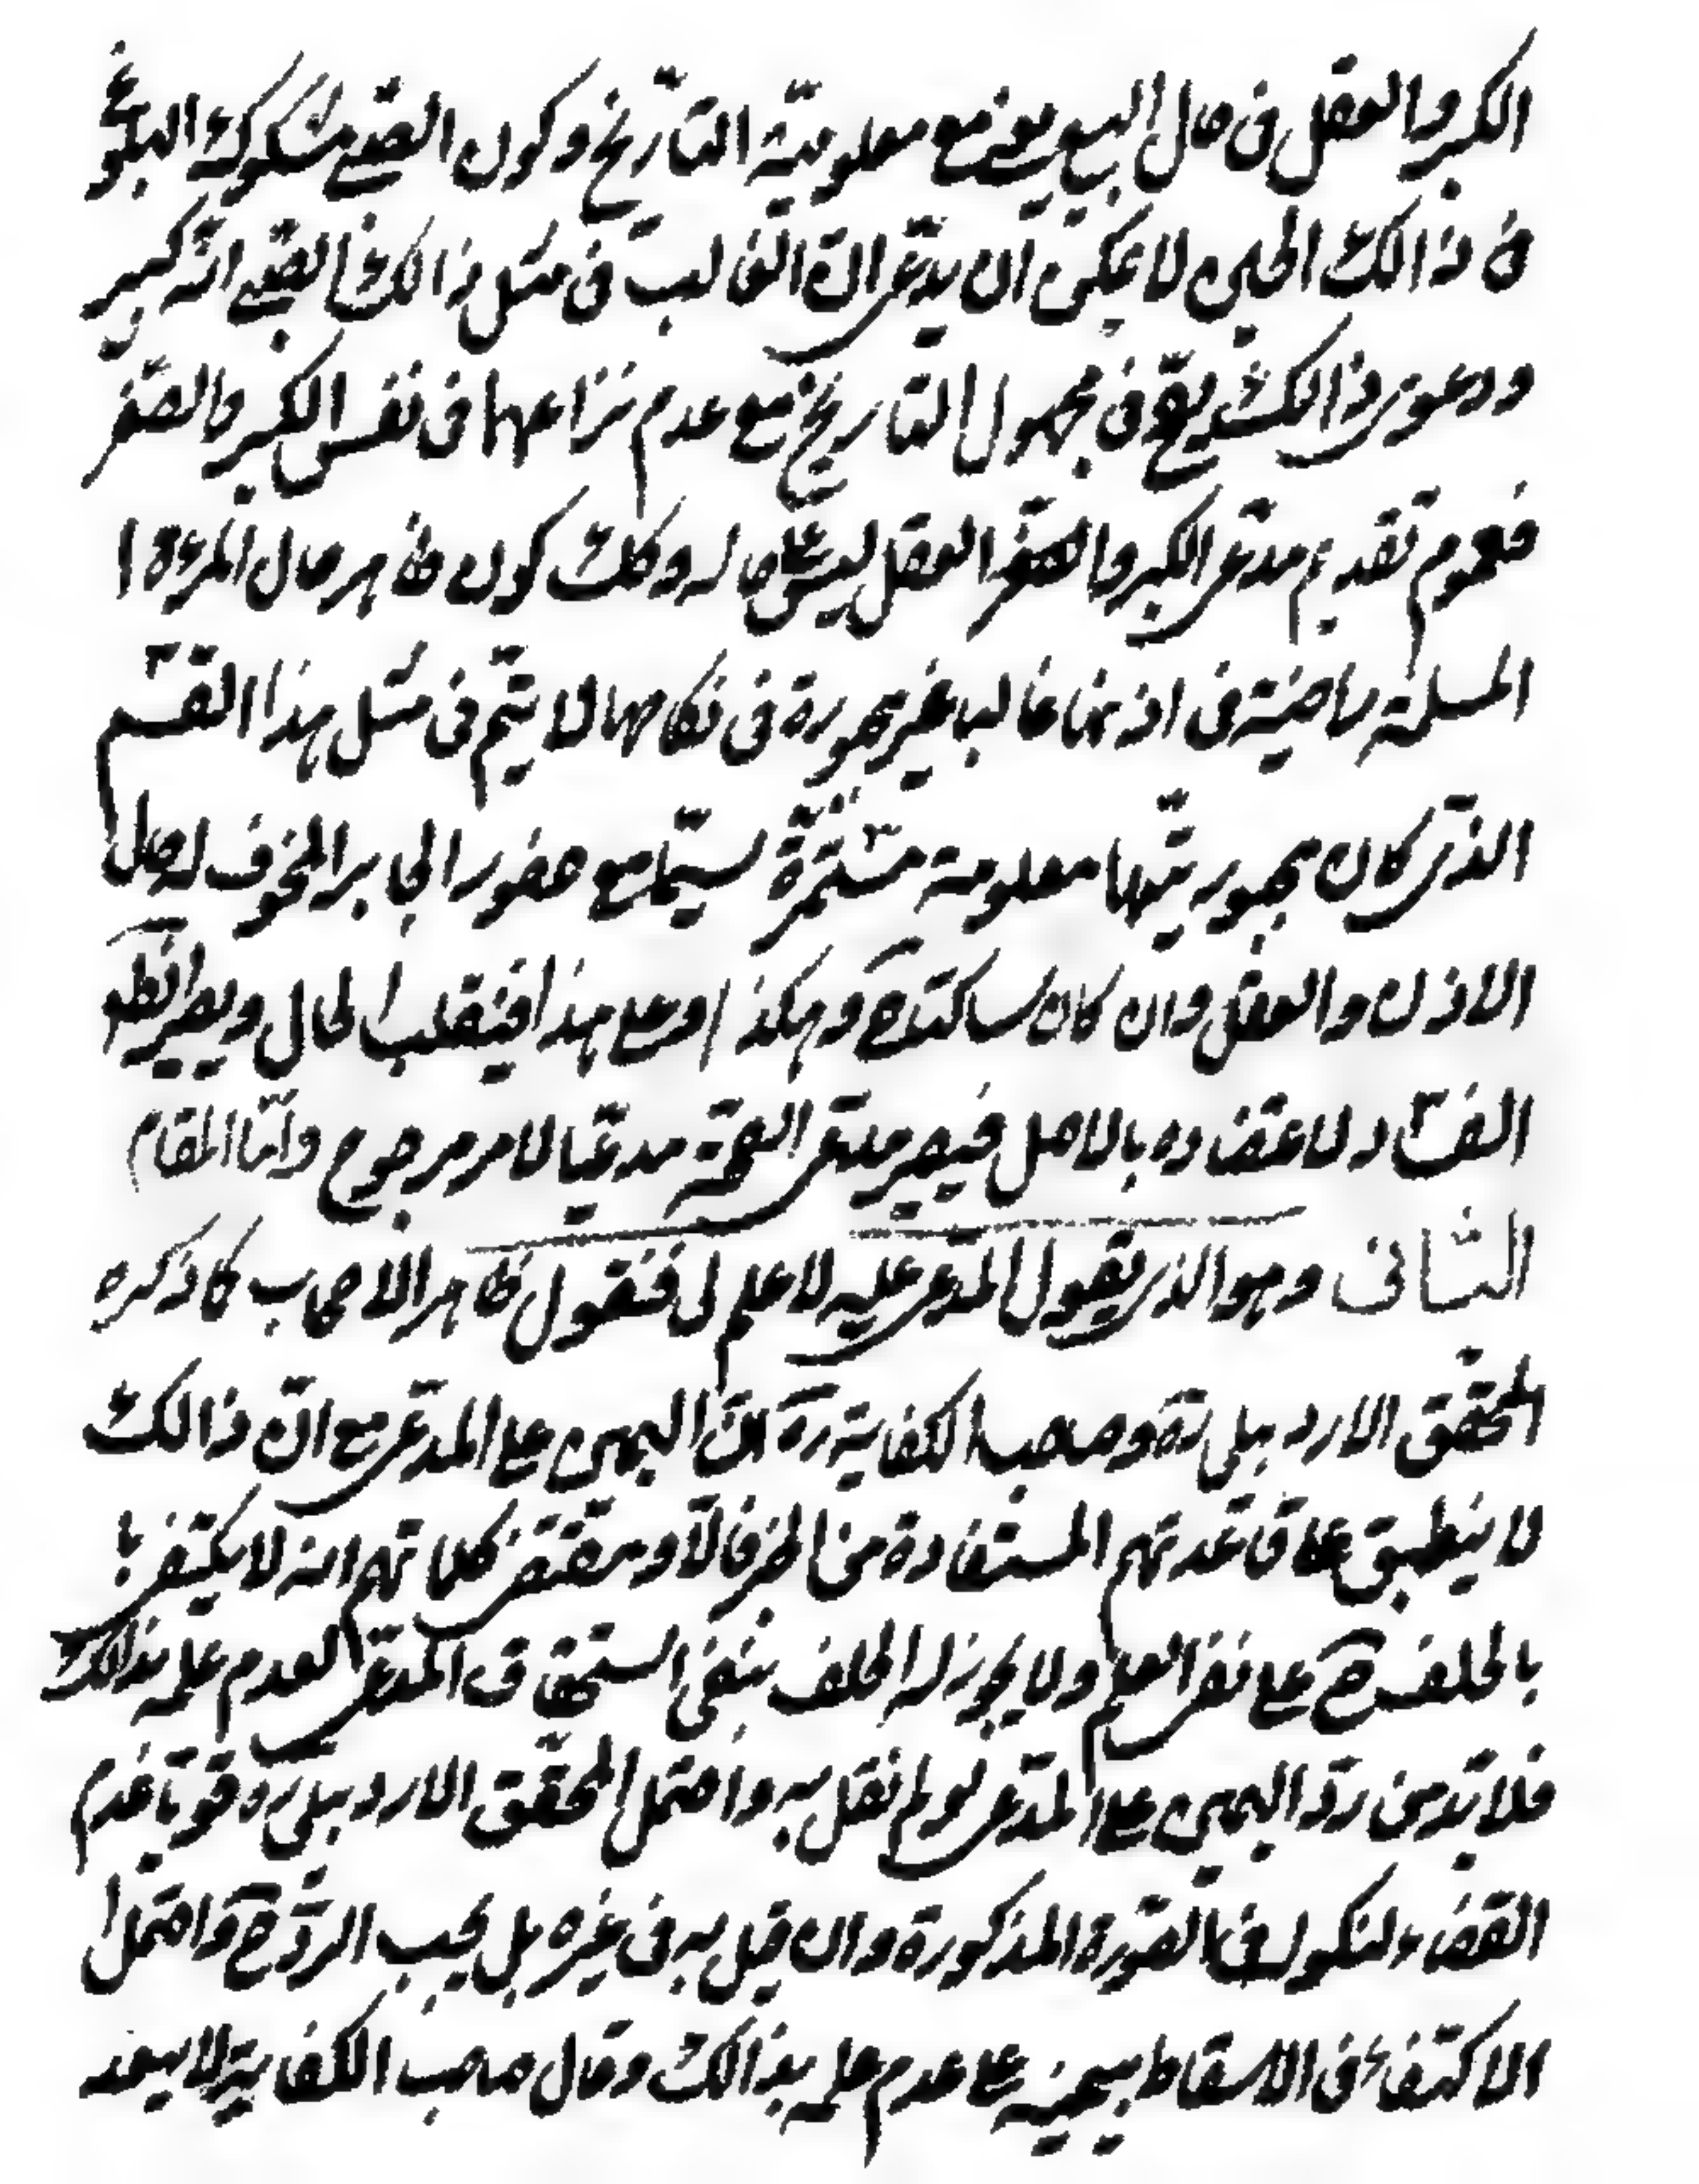 الكبر والعقل فى حال البيع يعنى مع معلوميّة التاريخ وكون الصّبى مشكوك البلوغ
فى ذالك الحين لا يمكن ان يدّعى انّ الغالب فى مثل ذالك الصّبى انّه كبير
ودعوى ذالك فى مجهول التاريخ مع عدم نزاعهما فى نفس الكبر والصّغر
فعموم تقديم مدّعى الكبر والعقل ليس على حاله وكك كون ظاهر حال المرءة ا
المسلمة راضية فى اذنها غالبا غير مجبورة فى نكاحها لا يتمّ فى مثل هذا القسم
الذى كان مجبوريّتها معلومة مستمرّة سيّما مع حضور الجابر المخوف لاصل
الاذن والعقل وان كان ساكتا ح وهكذا وعلى هذا فينقلب الحال ويصير الظهو
الفساد لاعتضاده بالاصل فيصير مدّعى الصحّة مدعيّا لامر مرجوح وامّا المقام
الثانى وهو الذى يقول المدّعى عليه لا علم لى فنقول ظاهر الاصحاب كما ذكره
المحقق الاردبيلى ره وصاحب الكفاية ره انّ اليمين على المدعى مع انّ ذالك
لا ينطبق على قاعدتهم المستفادة من الخبر فالاو مقتضى كلماتهم انه لا يكتفى با
بالحلف ح على نفى العلم ولا يجوز له الحلف بنفى استحقاق المدّعى لعدم علمه بذالك
فلا بدّ من ردّ اليمين على المدّعى لو لم نقل به واحتمل المحقّق الاردبيلى ره قويّا عدم
القضاء بالنكول فى الصّورة المذكورة وان قيل به فى غيره بل يجب الردّ ح واحتمل
الاكتفاء فى الاسقاط بيمينه على عدم علمه بذالك وقال صاحب الكفاية لا يبعد